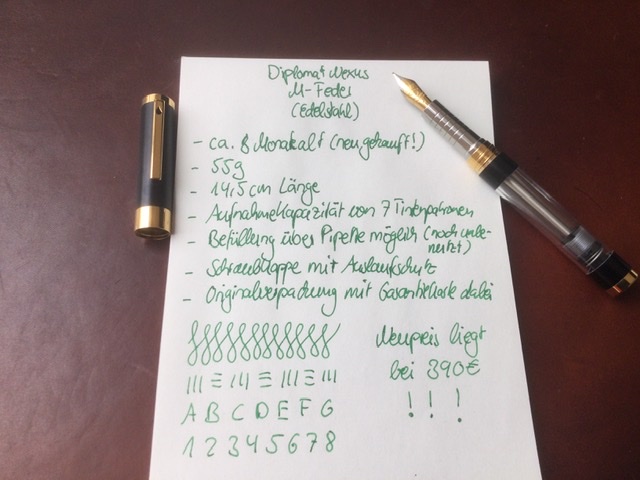 Diplomat Nexus
M-Feder
(Edelstahl)
- ca. 8 Monate alt (neu gekauft!)
- 55g
- 14,5cm Länge
- Aufnahmekapazität von 7 Tintenpatronen
- Befüllung über Pipette möglich (noch unbe-
nutzt)
- Schraubkappe mit Auslaufschutz
- Originalverpackung mit Garantiekarte dabei
Neupreis liegt
bei 390€
! ! !
A B C D E F G
1 2 3 4 5 6 7 8